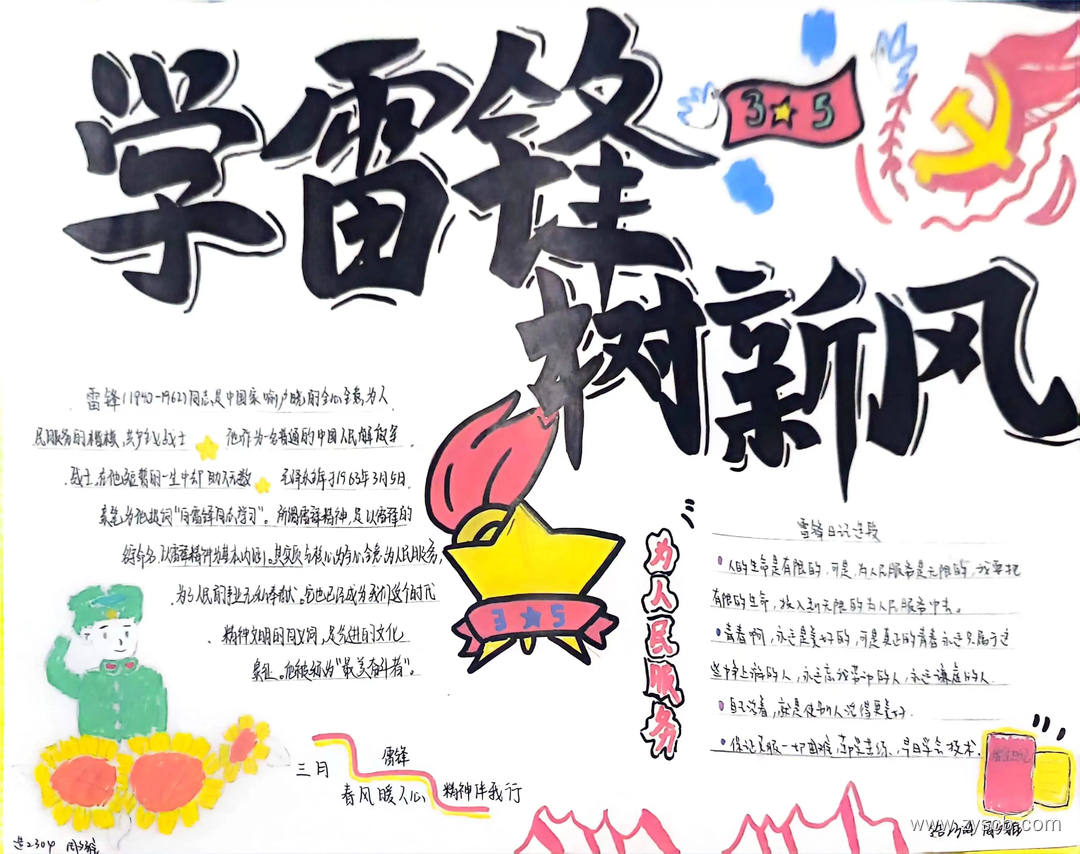 学雷锋
3 5
树新风
雷锋(1940-1962)同志,是中国家喻户晓的全心全意为人
民服务的楷模,共产主义战士 他作为一名普通的中国人民解放军
战士,在他短暂的一生中却助人无数 毛泽东于1963年3月5日
亲笔为他题词"向雷锋同志学习"。所谓雷锋精神,是以雷锋的
名命名,以雷锋精神为基本内涵。其实质与核心为全心全意为人民服务,
为了人民的事业无私奉献。它也已经成为我们这个时代
精神文明的同义词,是先进的文化
象征。他被称为"最美奋斗者"。
3 5
为人民服务
雷锋日记选段
人的生命是有限的,可是,为人民服务是无限的,我要把
有限的生命,投入到无限的为人民服务中去。
青春啊,永远是美好的,可是真正的青春永远只属于这
些力争上游的人,永远忘我劳动的人,永远谦虚的人.
自己活着,就是使别人过得更美好.
保证克服一切困难,早日学会技术.
三月
雷锋
春风暖人心
精神伴我行
雷锋日记
造2304
www.zyscb.com